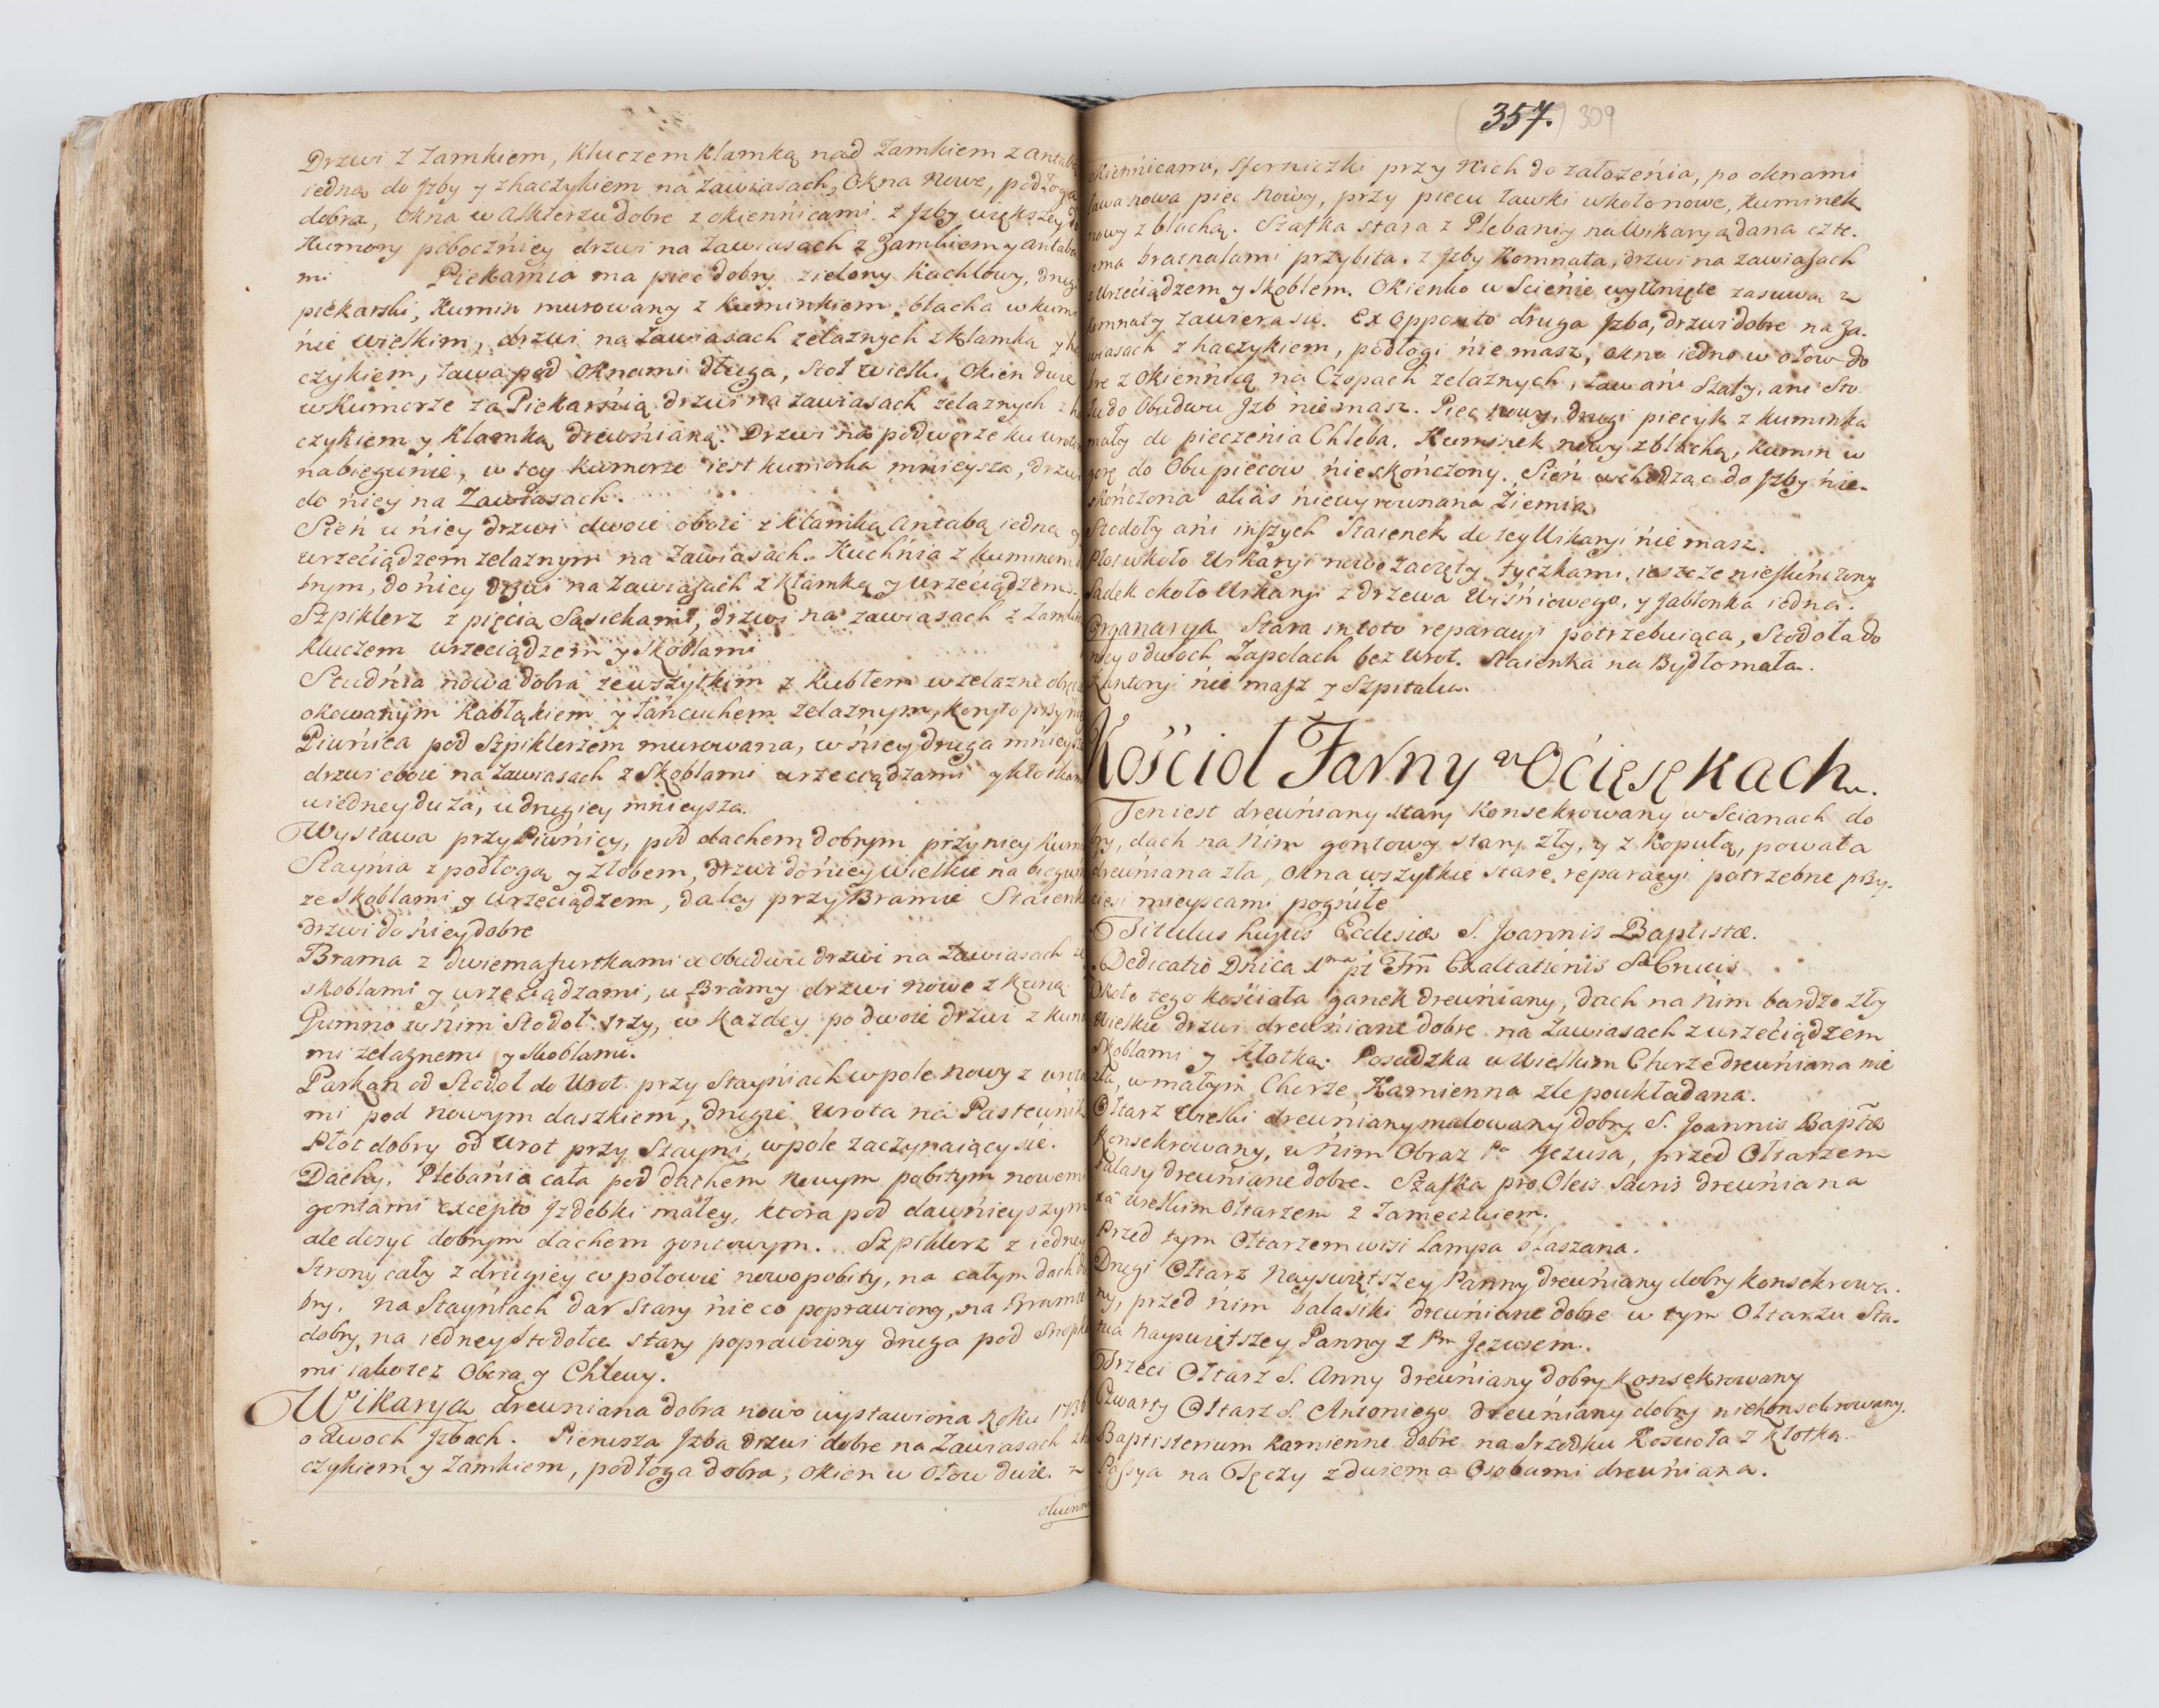 Drzwi z Zamkiem, kluczem klamką nad Zamkiem z antabą
iedną do Jzby y zhaczykiem na zawiasach, Okna nowe, podłoga
dobra, okna w Alkierzu dobre z okiennicami. z Jzby większey do
Kumory pobocżniey drzwi na Zawiasach z Zamkiem y antaba
mi Piekarnia ma piec dobry zielony kachlowy, drugi
piekarski, Kumin murowany z kuminkiem, blacha w kumi
nie wielkim, drzwi na Zawiasach zelaznych z klamką y ha
czykiem, ława pod oknami długa, Stoł wielki, Okien dwie
w Kumorze za Piekarnią drzwi na zawiasach zelaznych z ha
czykiem y klamką drewnianą. Drzwi na podworze ku wrotom
na biegunie, w tey kumorze iest kumorka mnieysza, drzwi
do niey na Zawiasach.
Sień u niey drzwi dwoie oboie z klamką Antabą iedną y
wrzeciądzem zelaznym na Zawiasach. Kuchnia z kuminem do
brym, do niey drzwi na Zawiasach z klamką y wrzeciądzem.
Szpiklerz z pięcią Sąsiekami, drzwi na zawiasach z Zamkiem
kluczem wrzeciądzem y skoblami
Studnia nowa dobra ze wszytkim z kubłem w zelazne obręcze
okowanym kabłąkiem y łancuchem zelaznym, koryto przy niey
Piwnica pod Szpiklerzem murowana, w niey druga mnieysza
drzwi oboie na Zawiasach z Skoblami wrzeciądzami y kłotkami
u iedney duza, u drugiey mnieysza.
Wystawa przy Piwnicy, pod dachem dobrym przy niey kum
Staynia z podłogą y złobem, drzwi do niey wielkie na biegun
ze skoblami y wrzeciądzem, daley przy Bramie Staienka
drzwi do niey dobre
Brama z dwiema furtkami u obudwu drzwi na Zawiasach ze
skoblami y wrzeciądzami, u Bramy drzwi nowe z kuną
Gumno w nim Stodoł trzy, w kazdey po dwoie drzwi z kuna
mi zelaznemi y skoblami.
Parkan od Stodoł do Wrot przy Stayniach w pole nowy z wrota
mi pod nowym daszkiem, drugie wrota na Pastewnik
Płot dobry od wrot przy Stayni, w pole zaczynaiący się.
Dachy. Plebania cała pod dachem nowym pobitym nowemi
gontami excepto Jzdebki małey, ktora pod dawnieyszym
ale dosyc dobrym dachem gontowym. Szpiklerz z iedney
Strony cały z drugiey w połowie nowo pobity, na całym dach do
bry. na Stayniach dar stary nieco poprawiony, na Bramie
dobry, na iedney Stodołce stary poprawiony druga pod Snopka
mi iako tez Obora y Chlewy.
Wikarya drewniana dobra nowo wystawiona Roku 1736
o dwoch Jzbach. Pierwsza Jzba drzwi dobre na Zawiasach zha
czykiem y Zamkiem, podłoga dobra, okien w ołow dwie. z
okienni
357. 309
okiennicami, sforniczki przy nich do załozenia, po oknami
ława nowa piec nowy, przy piecu ławki wkoło nowe, kuminek
nowy z blachą. Szafka stara z Plebaniy na Wikaryą dana czte.
rema bratnalami przybita. z Jzby Komnata, drzwi na zawiasach
z wrzeciądzem y skoblem. Okienko w Scienie wytknięte zasuwa z
komnaty zawiera się. Ex Opposito druga Jzba, drzwi dobre na Za.
wiasach z haczykiem, podłogi nie masz, okno iedno w ołow do
bre z okiennicą na Czopach zelaznych, Ław ani Szafy, ani Sto
łu do Obudwu Jzb niemasz. Piec nowy, drugi piecyk z kuminka
mały do pieczenia Chleba. Kuminek nowy z blachą, kumin w
gorę do Obu piecow nieskończony. Sień wchodząc do Jzby nie.
skończona alias niewyrownana Ziemia
Stodoły ani inszych Staienek do tey Wikaryi nie masz.
Płot wkoło Wikaryi nowo zaczęty tyczkami, ieszcze nieskończony
Sadek około Wikaryi z drzewa Wisniowego, y Jabłonka iedna.
Organarya Stara in toto reparacyi potrzebuiąca, Stodoła do
niey o dwoch Zapolach bez wrot. Staienka na Bydło mała.
Kantoryi nie masz y Szpitalu.
Kościoł Farny w Ocięsękach.
Ten iest drewniany stary konsekrowany w Scianach do
bry, dach na nim gontowy stary zły, y z Kopułą, powała
drewniana zła, okna wszytkie stare, reparacyi potrzebne przy.
ciesi mieyscami pogniłe
Titulus hujus Ecclesiæ S. Joannis Baptistæ.
Dedicatio Dnica 1ma pt Fm Exaltationis S. Crucis
Około tego kościoła ganek drewniany, dach na nim bardzo zły
Wielkie drzwi drewniane dobre na Zawiasach z wrzeciądzem
skoblami y kłotką. Posadzka w Wielkim Chorze drewniana nie
zła, w małym Chorze, Kamienna zle poukładana.
Ołtarz Wielki drewniany malowany dobry S. Joannis Baptæ
konsekrowany, w nim Obraz Pa Jezusa, przed Ołtarzem
balasy drewniane dobre. Szafka pro Oleis Sacris drewniana
za wielkim Ołtarzem z Zameczkiem.
Przed tym Ołtarzem wisi Lampa blaszana.
Drugi Ołtarz Nayswiętszey Panny drewniany dobry konsekrowa.
ny, przed nim balaśiki drewniane dobre w tym Ołtarzu Sta.
tua Nayswiętszey Panny z Pm Jezusem.
Trzeci Ołtarz S. Anny drewniany dobry konsekrowany
Czwarty Ołtarz S. Antoniego drewniany dobry niekonsekrowany.
Baptisterium kamienne dobre na Srzodku Koscioła z kłotką.
Passya na Tęczy z dwiema Osobami drewniana.